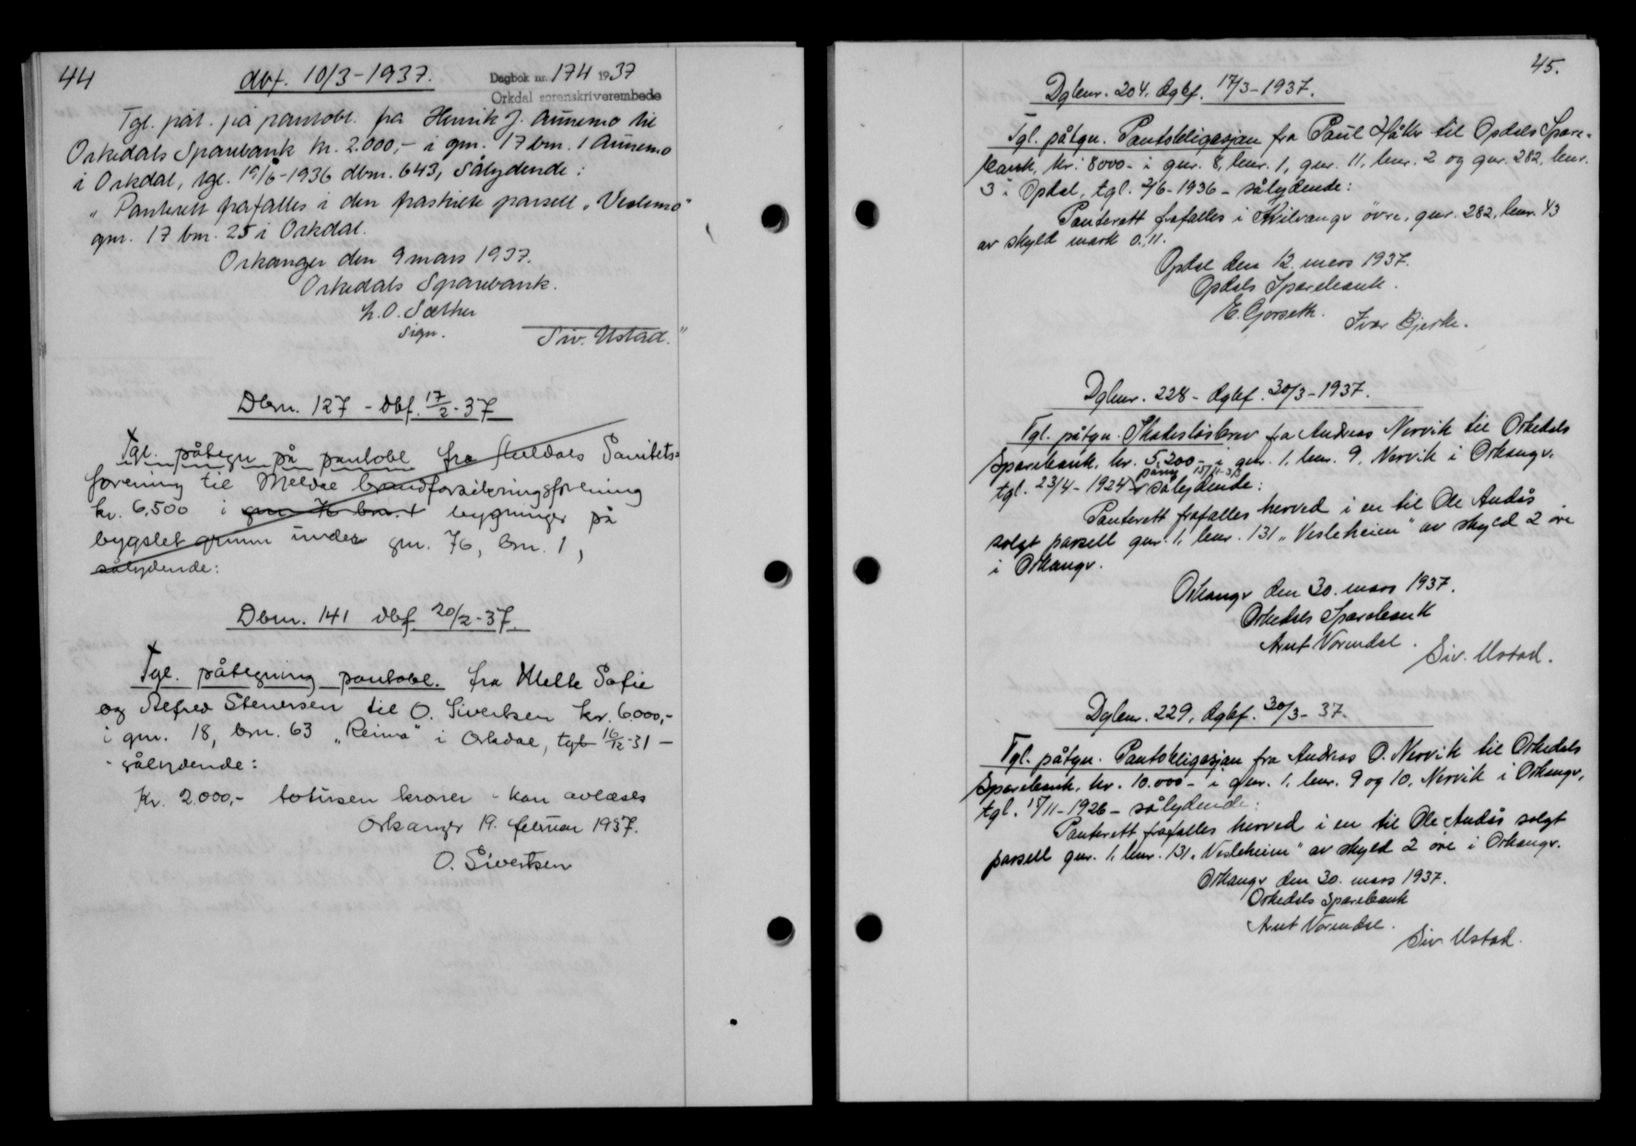 44
dbf. 10/3-1937.
Dagbok nr. 174 1937
Orkdal sorenskriverembede
Tgl. påt. på pantobl. fra Henrik J. Aunemo til
Orkedals Sparebank kr. 2.000,- i gnr. 17 bnr. 1 Aunemo
i Orkdal, tgl. 19/6-1936 dbnr. 643, Sålydende:
"Panterett frafalles i den fraskilte parsell "Veslemo"
gnr. 17 bnr. 25 i Orkdal.
Orkanger den 9 mars 1937.
Orkedals Sparebank.
L.O. Sæther
sign.
Siv. Ustad."
Dbnr. 127 - Dbf. 17/2-37
Tgl. påtegn på pantobl fra Meldals Sanitets-
forening til Meldal brandforsikringsforening
kr. 6.500 i gnr 76 bnr. 1 bygninger på
bygslet grunn under gnr. 76, bnr. 1,
sålydende:
Dbnr. 141 dbf 20/2-37.
Tgl. påtegning pantobl. fra Mette Sofie
og Alfred Stenersen til O. Sivertsen kr. 6000,-
i gnr. 18, bnr. 63 "Reima" i Orkdal, tgl 16/12-31 -
- sålydende:
Kr. 2.000,- totusen kroner - kan avlæses
Orkanger 19. februar 1937.
O. Sivertsen
45.
Dgbnr. 204. dgbf. 17/3-1937.
Tgl. påtgn. Pantobligasjon fra Paul Håker til Opdals Spare-
bank, kr. 8000- i gnr. 8, bnr. 1, gnr. 11, bnr. 2 og gnr. 282, bnr.
3 i Opdal, tgl. 2/6-1936 - sålydende:
Panterett frafalles i Kilvangr øvre, gnr. 282, bnr. 43
av skyld mark 0.11.
Opdal den 12. mars 1937.
Opdals Sparebank.
E. Gorseth. Ivar Bjerke.
Dgbnr. 228 - dgbf. 30/3-1937.
Tgl. påtgn. Skadesløsbrev fra Andreas Nervik til Orkedals
Sparebank, kr. 5.200- i gnr. 1, bnr. 9, Nervik i Orkangr.
tgl. 23/4-1924 - sålydende:
Panterett frafalles herved i en til Ole Andås
solgt parsell gnr. 1, bnr. 131 "Vesleheim" av skyld 2 øre
i Orkangr.
Orkangr den 30. mars 1937.
Orkedals Sparebank
Arnt Vorndal.
Siv. Ustad.
Dgbnr. 229, dgbf. 30/3-37.
Tgl. påtgn. Pantobligasjon fra Andreas O. Nervik til Orkedals
Sparebank, kr. 10.000- i gnr. 1, bnr. 9 og 10, Nervik i Orkangr,
tgl. 15/11-1926 - sålydende:
Panterett frafalles herved i en til Ole Andås solgt
parsell gnr. 1, bnr. 131, "Vesleheim" av skyld 2 øre i Orkangr.
Orkangr den 30. mars 1937.
Orkedals Sparebank
Arnt Vorndal.
Siv Ustad.